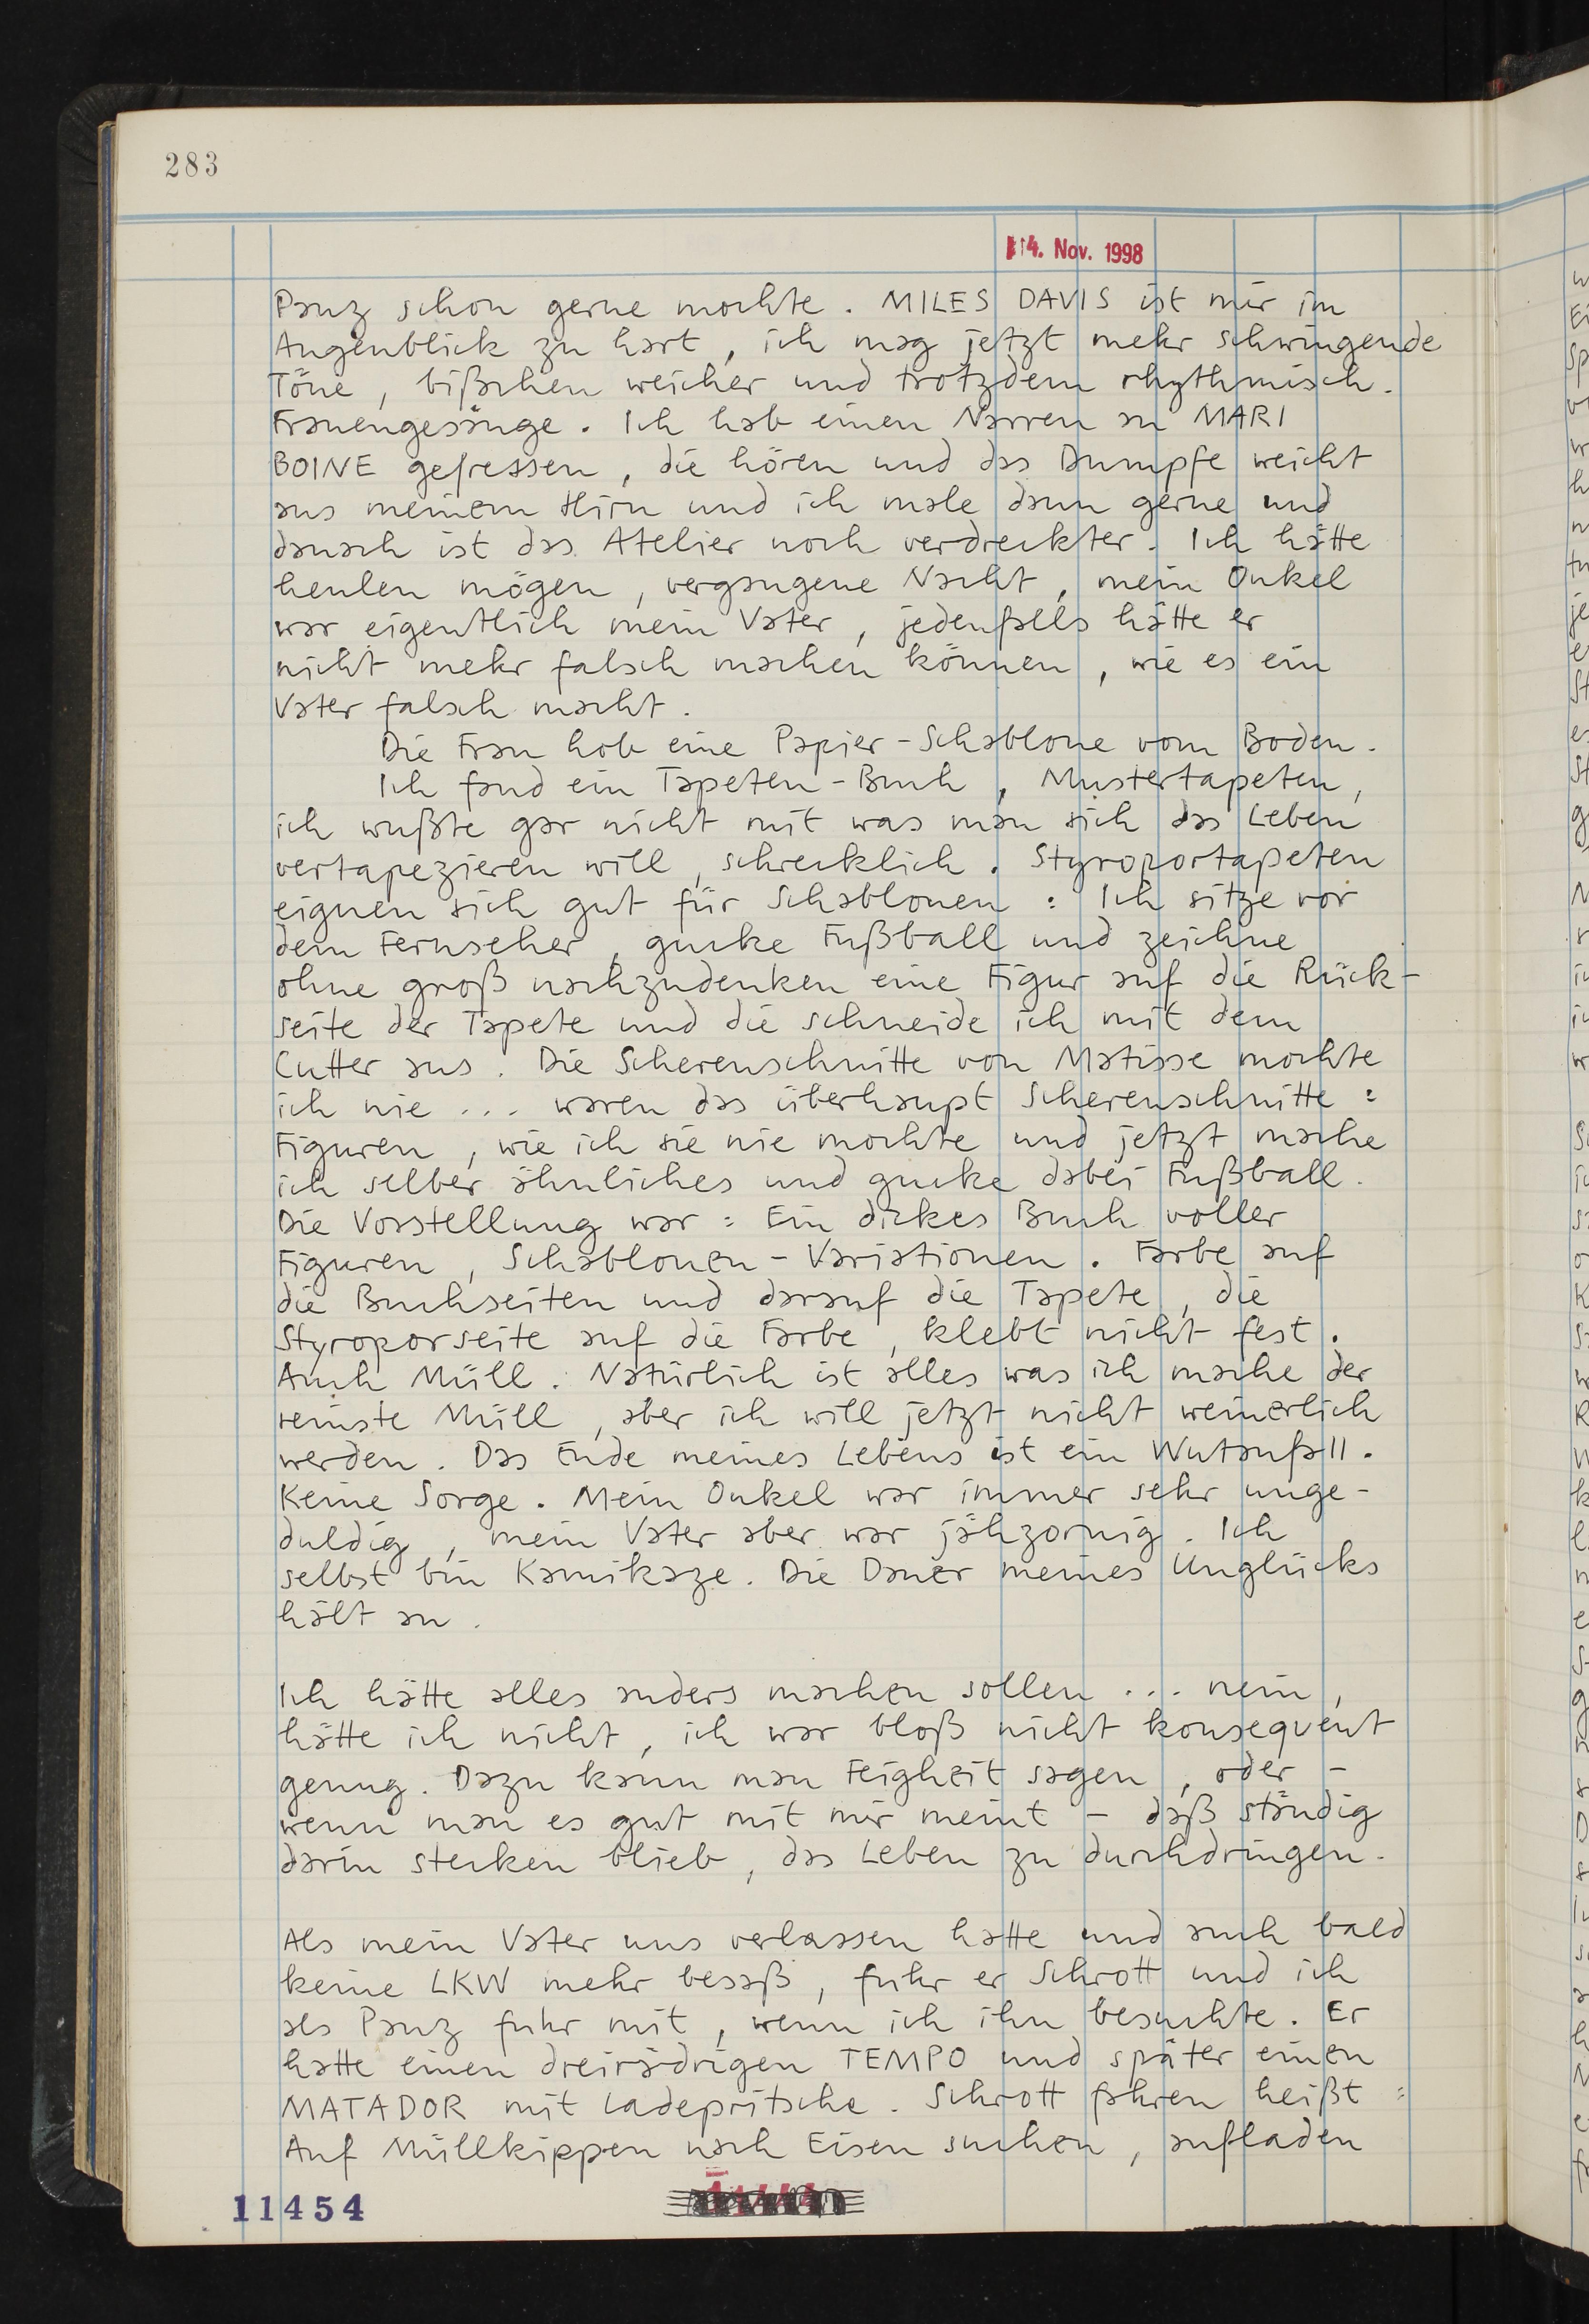 283
14. Nov. 1998
Panz schon gerne mochte. MILES DAVIS ist mir im
Augenblick zu hart, ich mag jetzt mehr schwingende
Töne, bißchen weicher und trotzdem rhythmisch.
Frauengesänge. Ich hab einen Narren an MARI
BOINE gefressen, die hören und das Dumpfe weicht
aus meinem Hirn und ich male dann gerne und
danach ist das Atelier noch verdreckter. Ich hätte
heulen mögen, vergangene Nacht, mein Onkel
war eigentlich mein Vater, jedenfalls hätte er
nicht mehr falsch machen können, wie es ein
Vater falsch macht.
Die Frau hob eine Papier-Schablone vom Boden.
Ich fand ein Tapeten-Buch, Mustertapeten,
ich wußte gar nicht mit was man sich das Leben
vertapezieren will, schrecklich. Styroportapeten
eignen sich gut für Schablonen: Ich sitze vor
dem Fernseher, gucke Fußball und zeichne
ohne groß nachzudenken eine Figur auf die Rück-
seite der Tapete und die schneide ich mit dem
Cutter aus. Die Scherenschnitte von Matisse mochte
ich nie ... waren das überhaupt Scherenschnitte:
Figuren, wie ich sie nie mochte und jetzt mache
ich selber ähnliches und gucke dabei Fußball.
Die Vorstellung war: Ein dickes Buch voller
Figuren, Schablonen-Variationen. Farbe auf
die Buchseiten und darauf die Tapete, die
Styroporseite auf die Farbe, klebt nicht fest.
Auch Müll. Natürlich ist alles was ich mache der
reinste Müll, aber ich will jetzt nicht weinerlich
werden. Das Ende meines Lebens ist ein Wutanfall.
Keine Sorge. Mein Onkel war immer sehr unge-
duldig, mein Vater aber war jähzornig. Ich
selbst bin Kamikaze. Die Dauer meines Unglücks
hält an.
Ich hätte alles anders machen sollen ... nein,
hätte ich nicht, ich war bloß nicht konsequent
genug. Dazu kann man Feigheit sagen, oder -
wenn man es gut mit mir meint - daß ständig
darin stecken blieb, das Leben zu durchdringen.
Als mein Vater uns verlassen hatte und auch bald
keine LKW mehr besaß, fuhr er Schrott und ich
als Panz fuhr mit, wenn ich ihn besuchte. Er
hatte einen dreirädrigen TEMPO und später einen
MATADOR mit Ladepritsche. Schrott fahren heißt:
Auf Müllkippen nach Eisen suchen, aufladen
11454